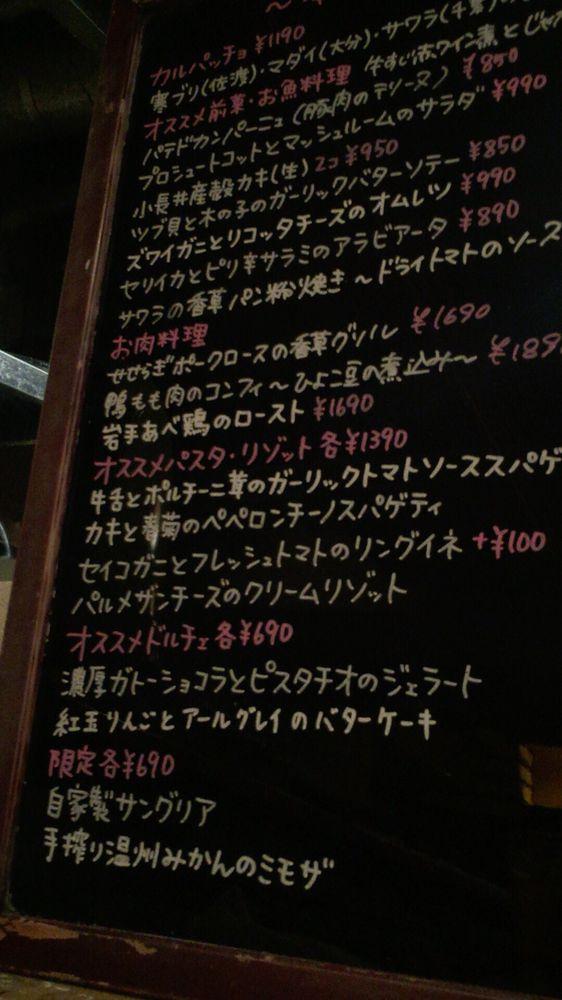 カルパッチョ ¥1190
寒ブリ(佐渡)・マダイ(大分)・サワラ(千葉)
オススメ前菜・お魚料理 牛すじ赤ワイン煮とじゃ
パテドカンパーニュ(豚肉のテリーヌ) ¥850
プロシュートコットとマッシュルームのサラダ ¥990
小長井産殻カキ(生)2コ ¥950
ツブ貝と木の子のガーリックバターソテー ¥850
ズワイガニとリコッタチーズのオムレツ ¥990
セリイカとピリ辛サラミのアラビアータ ¥890
サワラの香草パン粉焼き〜ドライトマトのソース
お肉料理
せせらぎポークロースの香草グリル ¥1690
鴨もも肉のコンフィ〜ひよこ豆の煮込み〜 ¥189
岩手あべ鶏のロースト ¥1690
オススメパスタ・リゾット 各¥1390
牛舌とポルチーニ茸のガーリックトマトソーススパゲ
カキと春菊のペペロンチーノスパゲティ
セイコガニとフレッシュトマトのリングイネ +¥100
パルメザンチーズのクリームリゾット
オススメドルチェ 各¥690
濃厚ガトーショコラとピスタチオのジェラート
紅玉りんごとアールグレイのバターケーキ
限定各¥690
自家製サングリア
手搾り温州みかんのミモザ